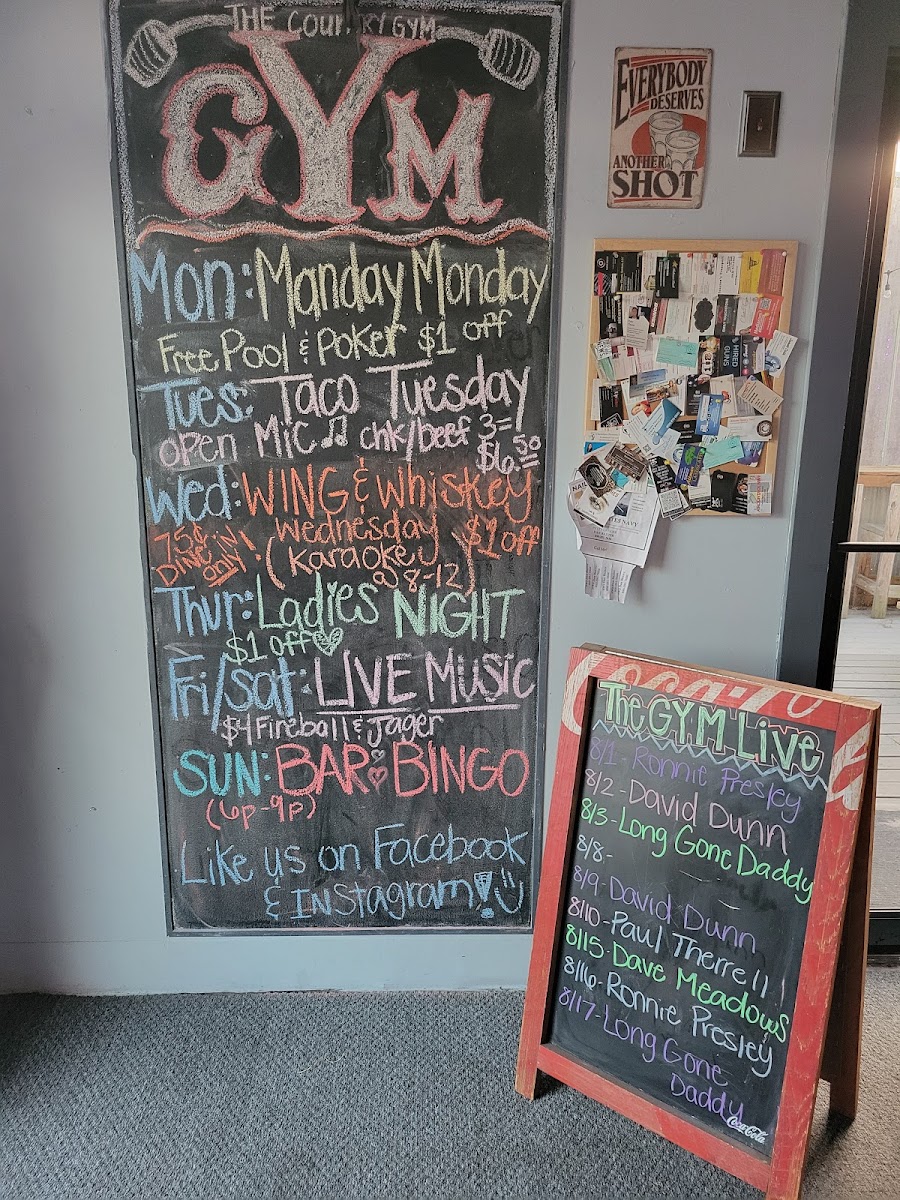 THE COUNTRY GYM
GYM
Mon: Manday Monday
Free Pool & Poker $1 off
Tues: Taco Tuesday
open Mic chk/beef 3= $6.50
Wed: WING & Whiskey
75¢ Dine in only! Wednesday $1 off
(Karaoke @ 8-12)
Thur: Ladies NIGHT
$1 off
Fri/Sat: LIVE Music
$4 Fireball & Jager
SUN: BAR BINGO
(6p-9p)
Like us on Facebook
& Instagram!
EVERYBODY
DESERVES
ANOTHER
SHOT
HIRED
GUNS
Coca-Cola
The GYM Live
8/1- Ronnie Presley
8/2- David Dunn
8/3- Long Gone Daddy
8/8-
8/9- David Dunn
8/10- Paul Therrell
8/15- Dave Meadows
8/16- Ronnie Presley
8/17- Long Gone
Daddy
Coca-Cola